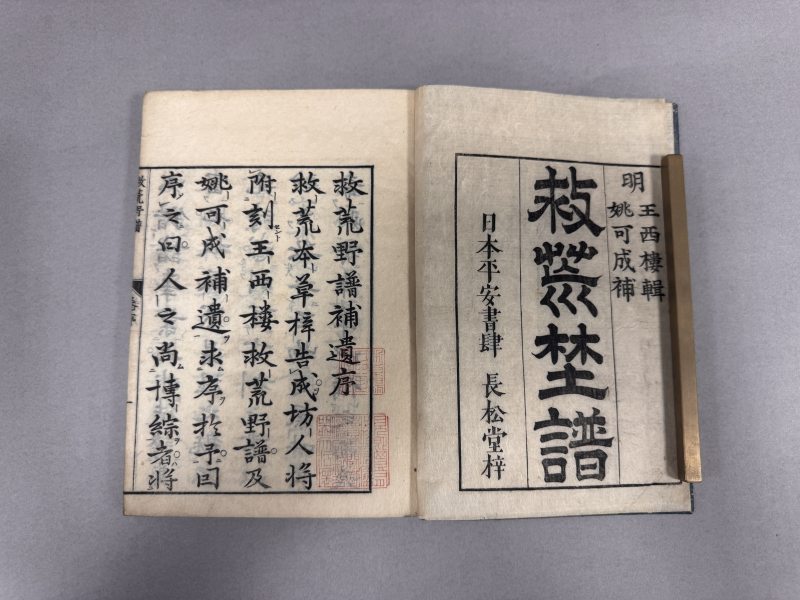 明
王西樓輯
姚可成補
救荒埜譜
日本平安書肆 長松堂梓
救荒野譜補遺序
救荒本草梓告成坊人將
附刻王西樓救荒野譜及
姚可成補遺求序於予囙
序之曰人之尚博綜者將